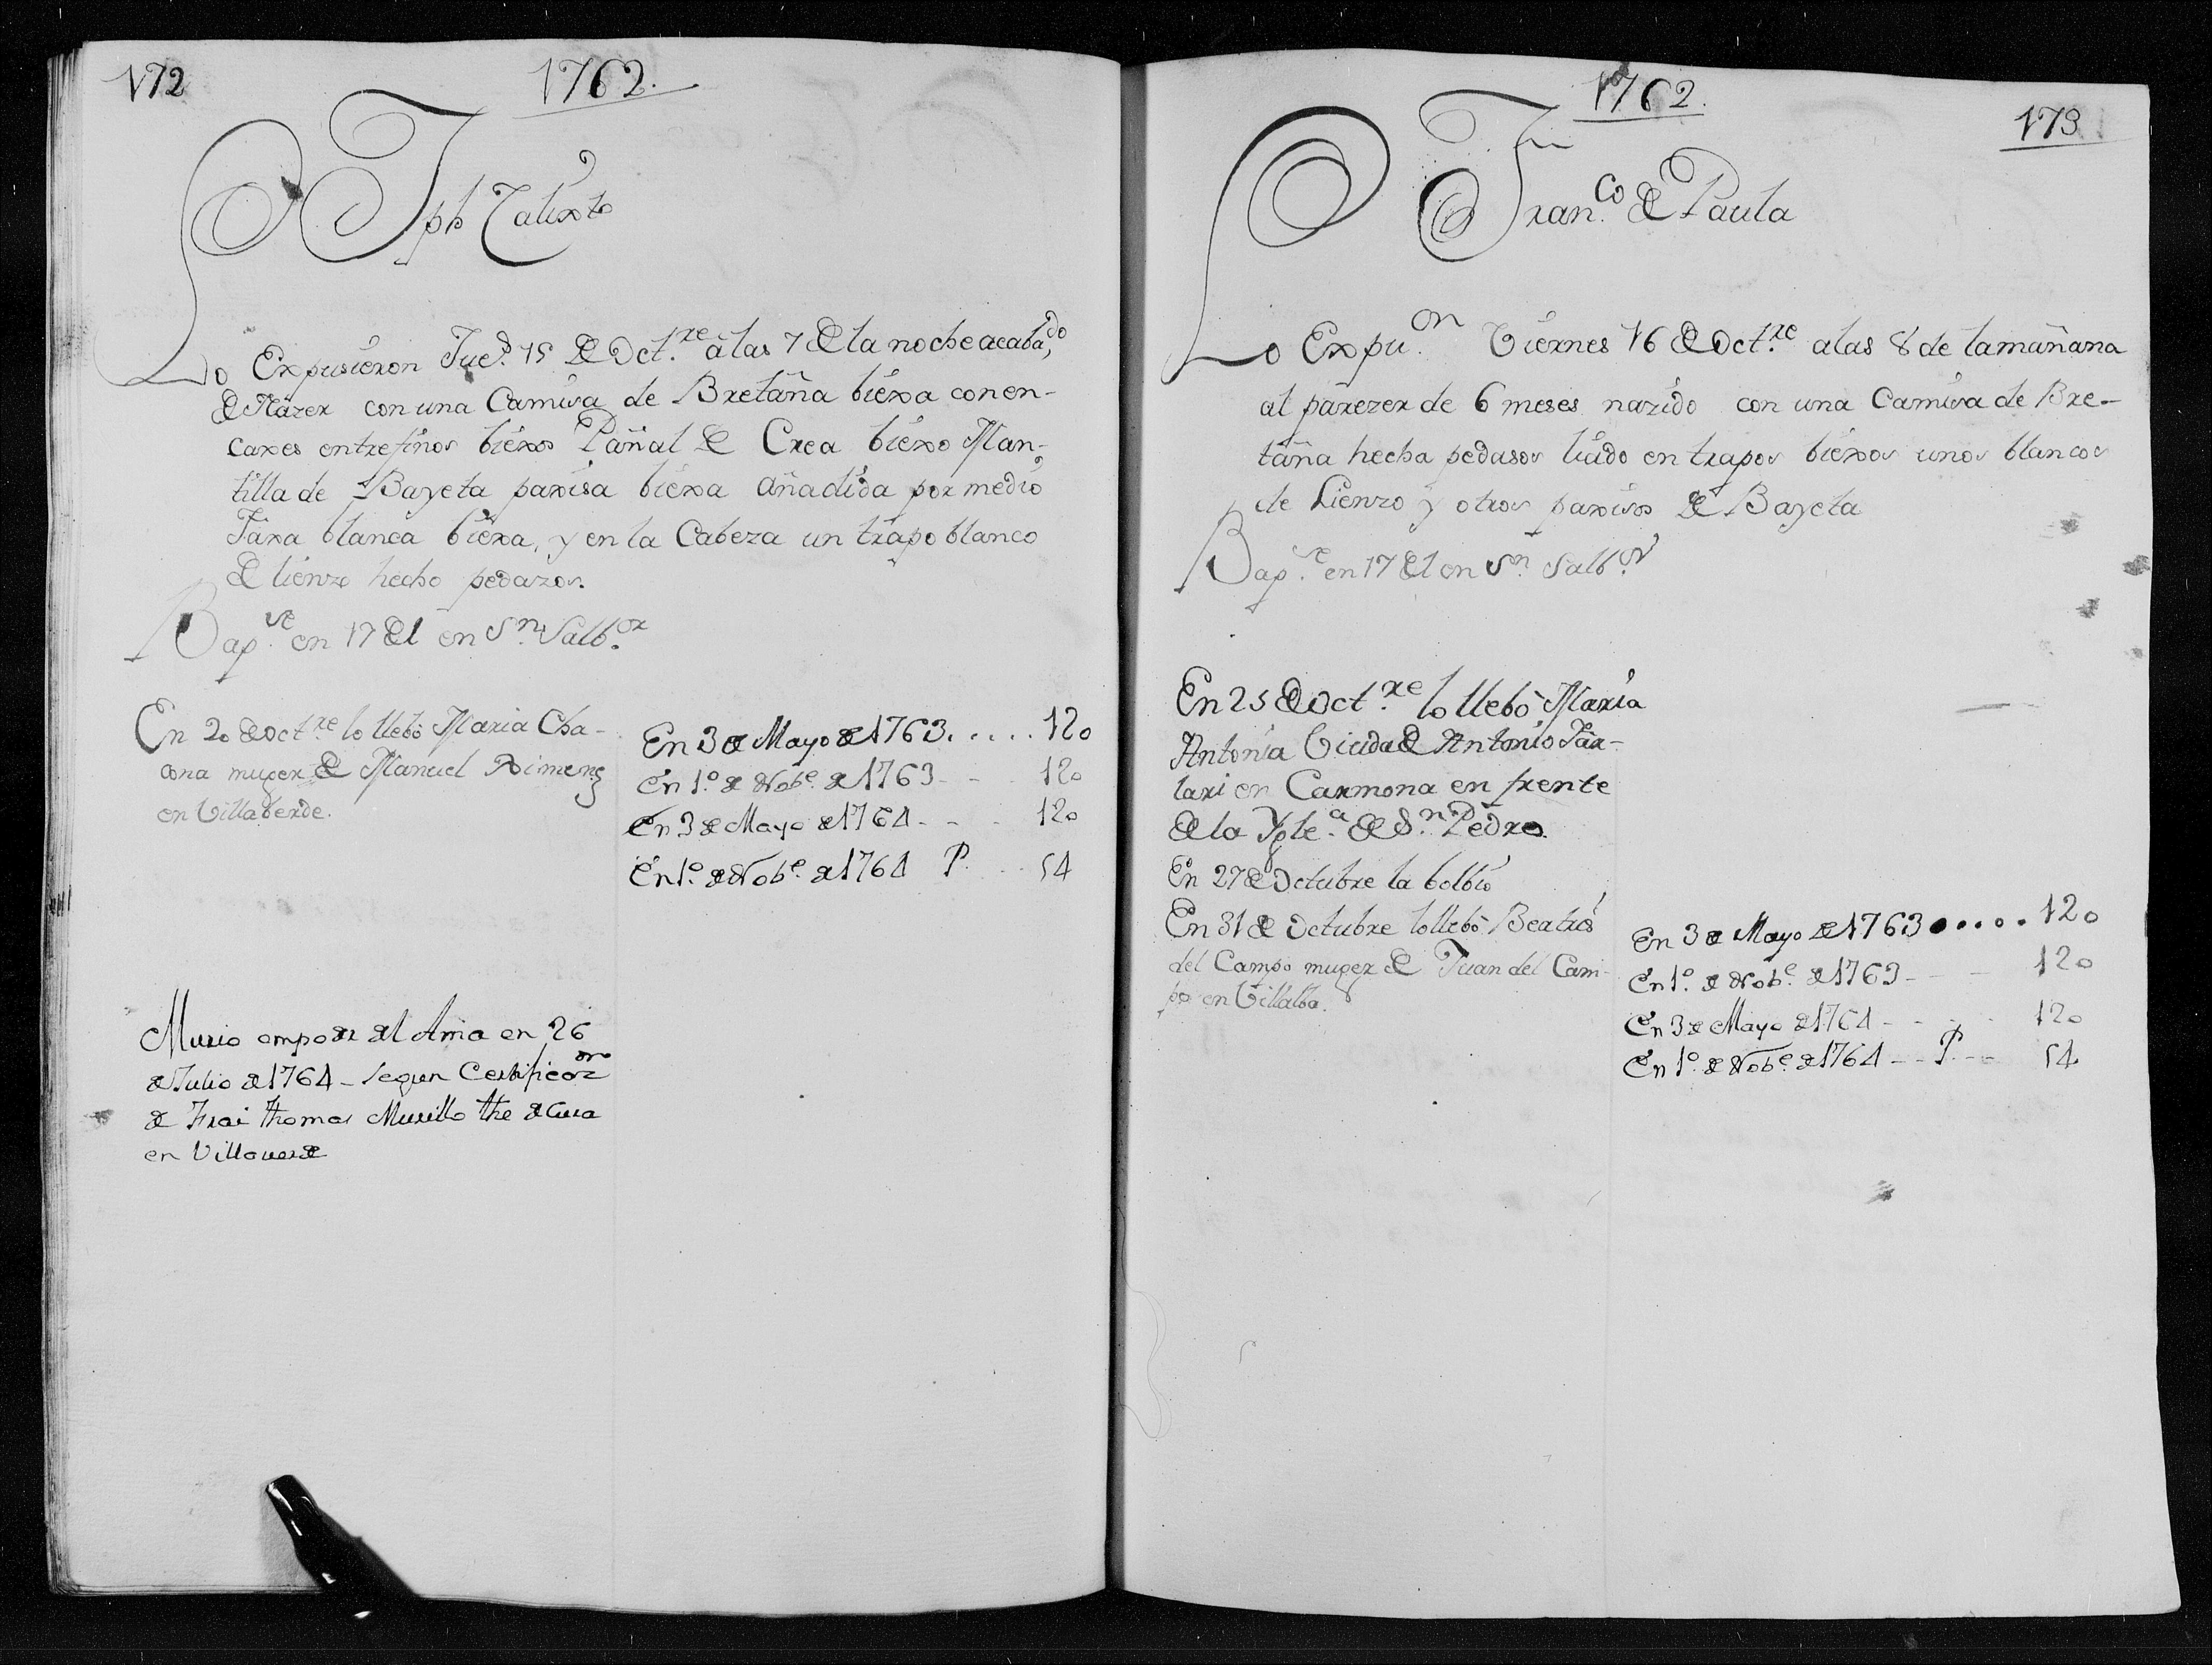 172
1762.
Jph Calixto
Lo Expusieron Jue.s 15 de Oct.re â las 7 de la noche acaba,do
de Nâzer con una Camisa de Bretâña biéxa con en-
caxes entrefinos biéxos Pañal de Crea biéxo Man-
tilla de Bayeta paxisa biéxa añadida por medio
Fâxa blanca biéxa, y en la Cabeza un trapo blanco
de lienzo hecho pedazos.
Bap.se en 17 del en Sn. Salb.or
En 20 de Oct.re lo llebô Maria Cha-
cona muger de Manuel Ximenz
en Villaberde.
En 3 de Mayo de 1763. . . . . 120
en 1.º de Nob.e de 1763 - - - 120
en 3 de Mayo de 1764 - - - 120
En 1.º de Nob.e de 1764 P. . . 54
Murio em poder del Ama en 26
de Julio de 1764 - segun Certificaon
de Frai Thomas Murillo the de Cura
en Villaverde
1762.
173
Fran.co de Paula
Lo Expu.on Viernes 16 de Oct.re a las 8 de la mañana
al pârezer de 6 meses nazido con una Camisa de Bre-
tâña hecha pedasos liado en trapos biéxos unos blancos
de Lienzo y otros paxisos de Bayeta
Bap.se en 17 del en Sn. Salb.or
En 25 de Oct.re lo llebô Maria
Antonia Viuda de Antonio Târ-
lari en Carmona en frente
de la Ygle.a de S.n Pedro.
En 27 de Octubre la bolbio
En 31 de Octubre lo llebô Beatris
del Campo muger de Juan del Cam-
po en Villalba.
En 3 de Mayo de 1763 . . . . . 120
En 1.º de Nob.e de 1763 - - - 120
En 3 de Mayo de 1764 - - - 120
En 1.º de Nob.e de 1764 - - P. - - 54